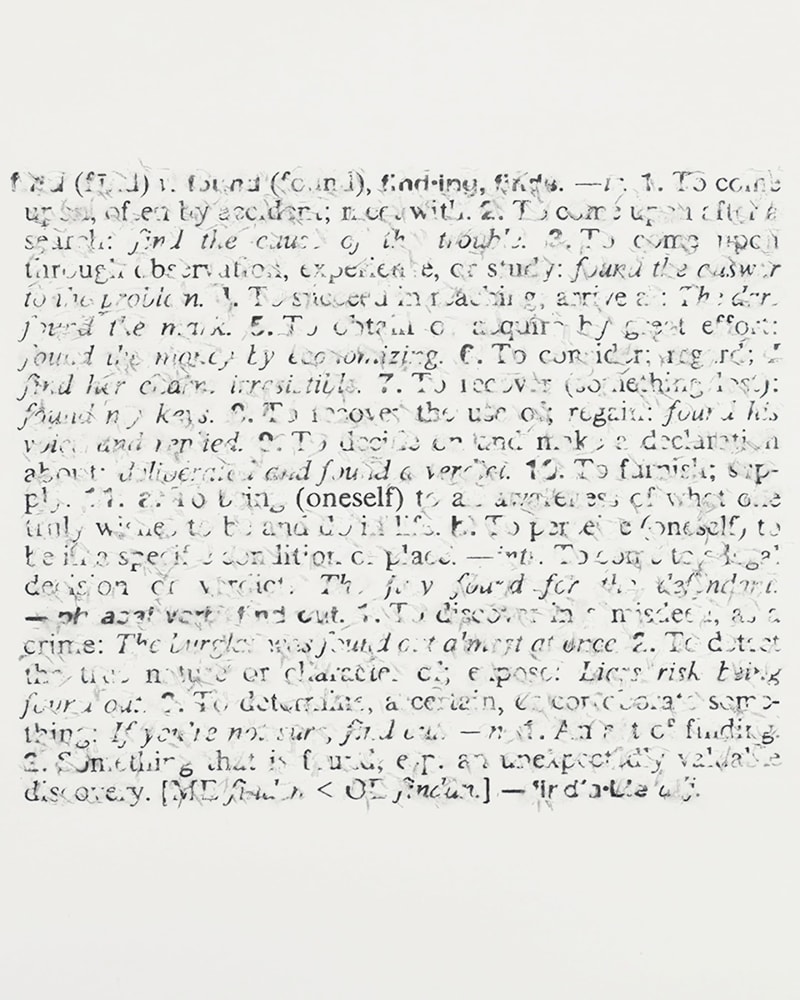 find (fīnd) v. found (found), find·ing, finds. —tr. 1. To come
upon, often by accident; meet with. 2. To come upon after a
search: find the cause of the trouble. 3. To come upon
through observation, experience, or study: found the answer
to the problem. 4. To succeed in reaching; arrive at: The dart
found the mark. 5. To obtain or acquire by great effort:
found the money by economizing. 6. To consider; regard; I
find her charm irresistible. 7. To recover (something lost):
found my keys. 8. To recover the use of; regain: found his
voice and replied. 9. To decide on and make a declaration
about: deliberated and found a verdict. 10. To furnish; sup-
ply. 11. a. To bring (oneself) to an awareness of what one
truly wishes to be and do in life. b. To perceive (oneself) to
be in a specific condition or place. —intr. To come to a legal
decision or verdict: The jury found for the defendant.
—phrasal verb. find out. 1. To discover in a misdeed, as a
crime: The burglar was found out almost at once. 2. To detect
the true nature or character of; expose: Liars risk being
found out. 3. To determine, ascertain, or corroborate some-
thing: If you're not sure, find out. —n. 1. An act of finding.
2. Something that is found, esp. an unexpectedly valuable
discovery. [ME finden < OE findan.] —find'a·ble adj.